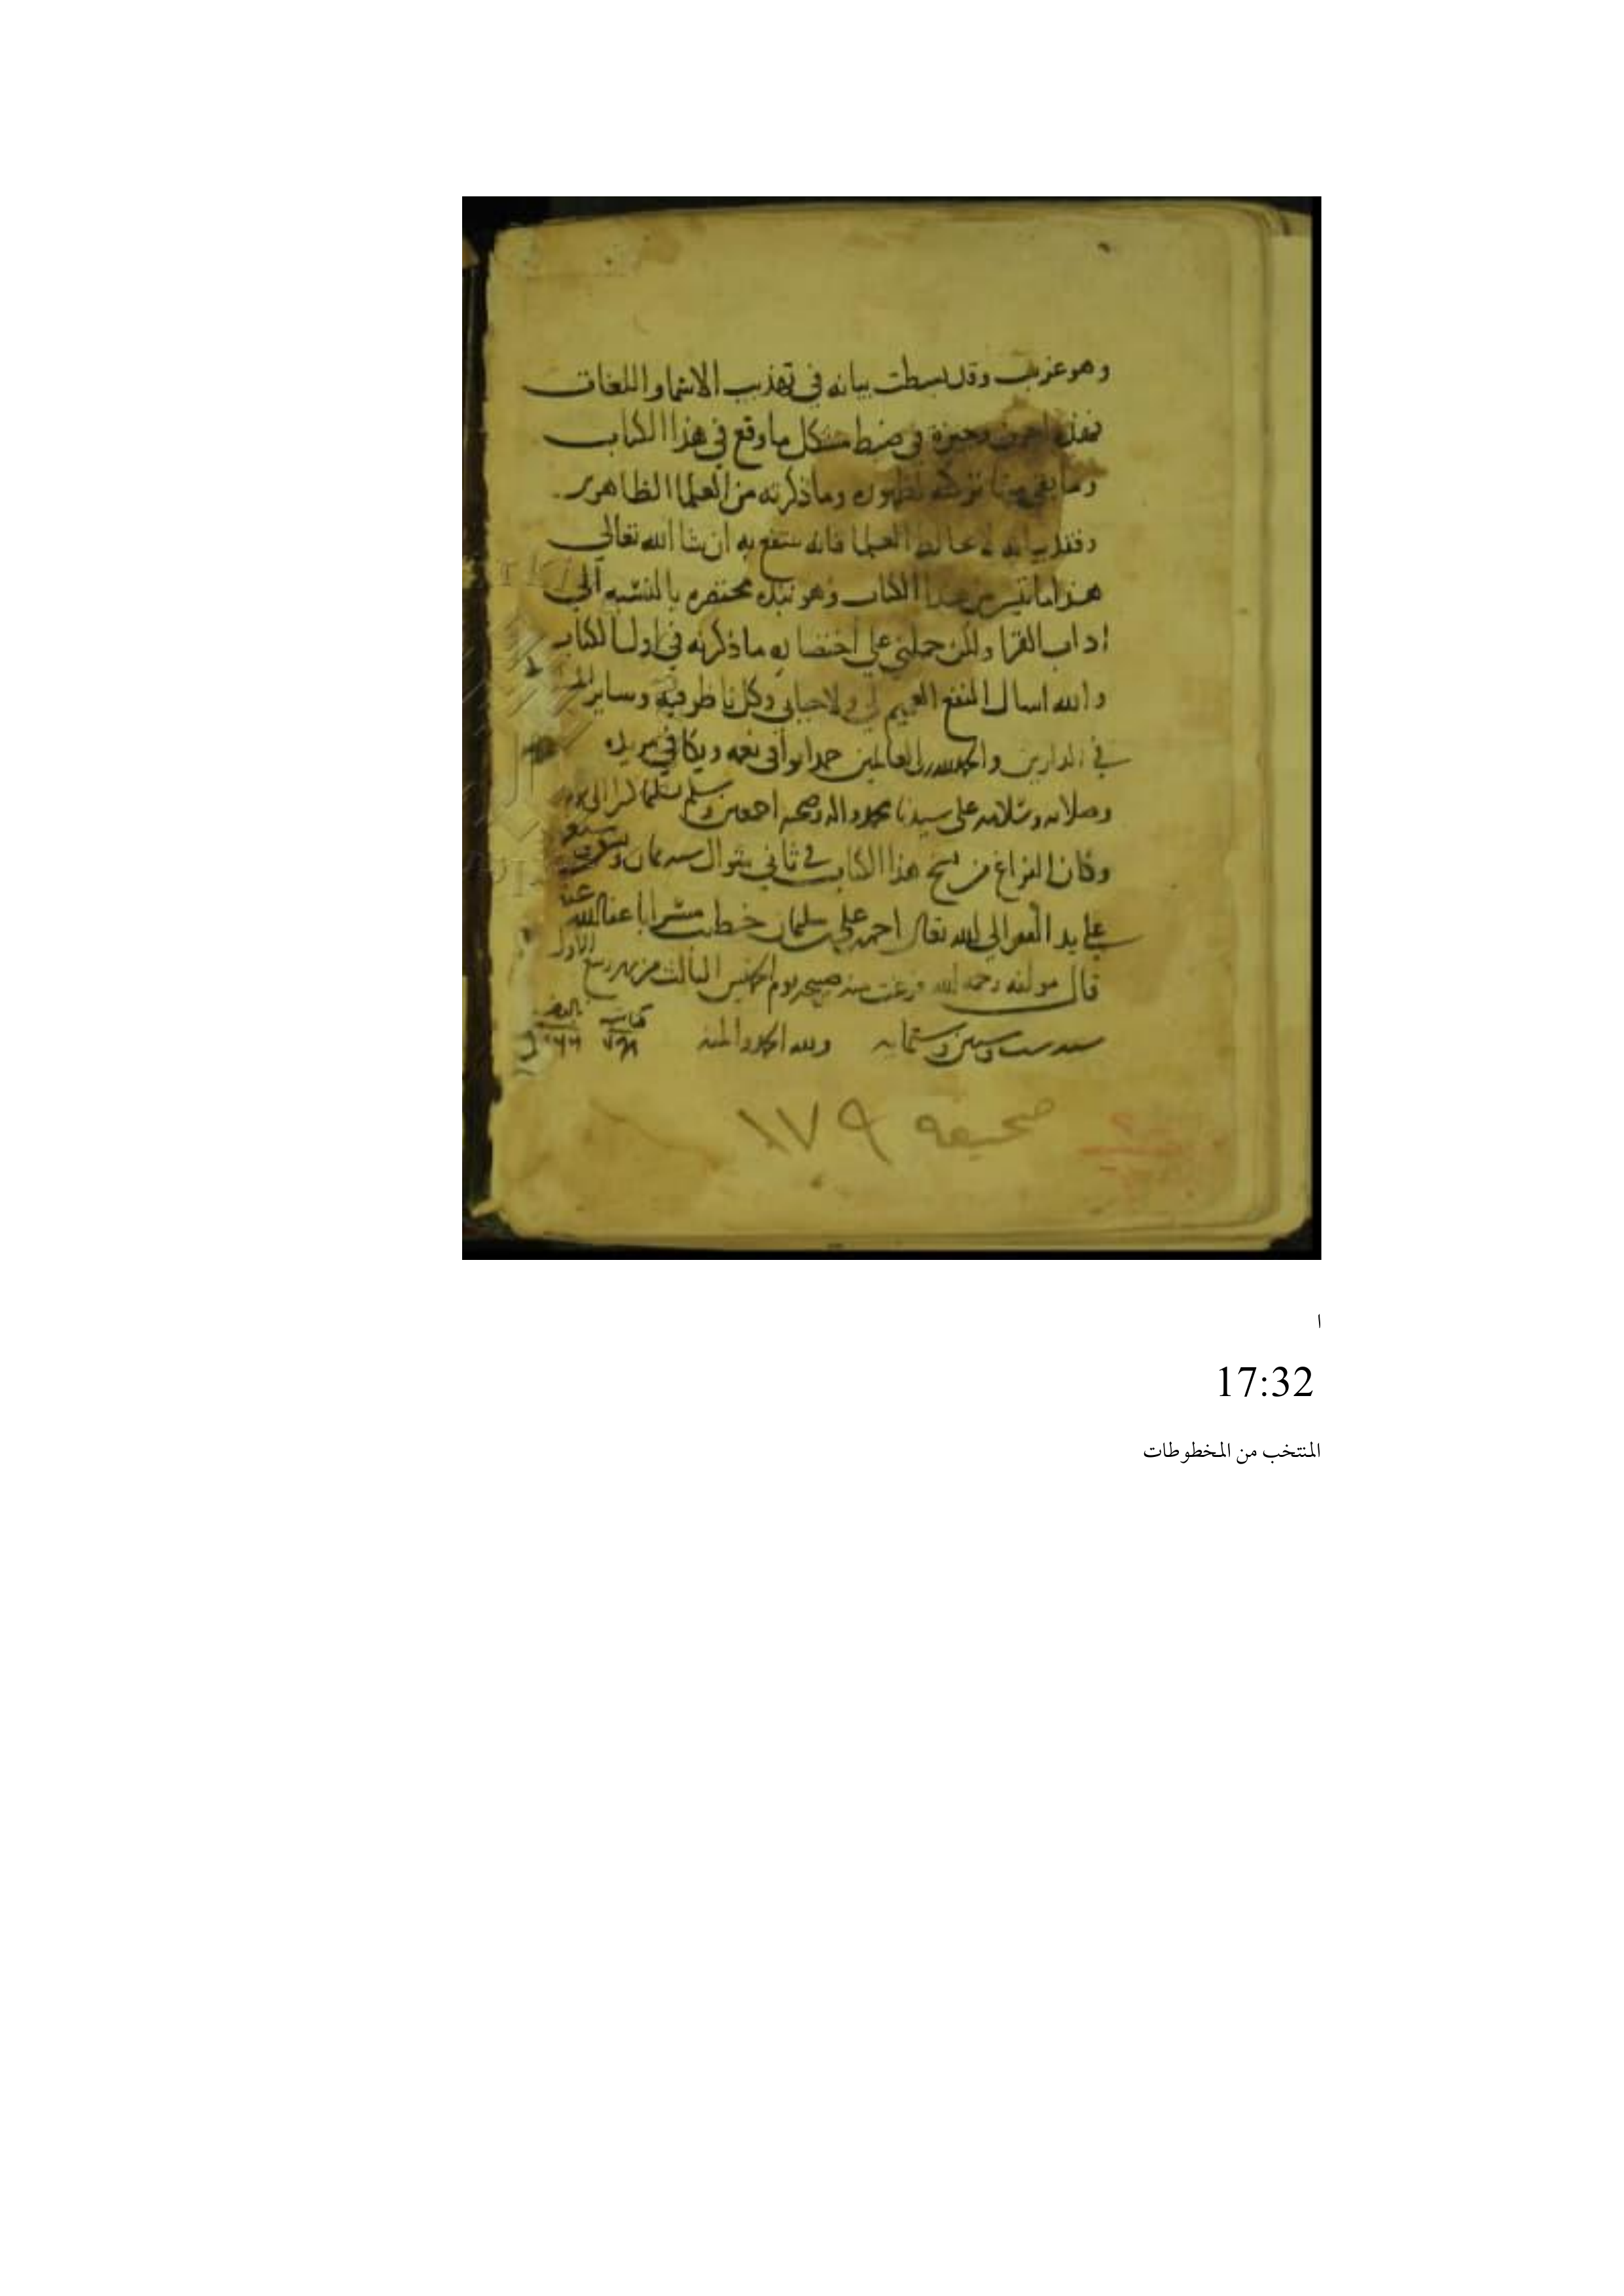 وهو غريب وقد بسطت بيانه في تهذيب الاسما واللغات
فهذه احرف وجيزة في ضبط مشكل ما وقع في هذا الكتاب
وما بقي منها تركته لظهوره وما ذكرته من الظاهر
بيانه لمن لا يخالط العلما فانه ينتفع به ان شا الله تعالى
هذا ما تيسر من هذا الكتاب وهو نبذه مختصره بالنسبه الى
اداب القرا ولكن حملني على اختصاره ما ذكرته في اول الكتاب
والله اسال النفع العميم لي ولاحبابي وكل ناظر فيه وساير
في الدارين والحمد لله رب العالمين حمدا يوافي نعمه ويكافي مزيده
وصلاته وسلامه على سيدنا محمد واله وصحبه اجمعين وسلم تسليما كثيرا الى يوم
وكان الفراغ من نسخ هذا الكتاب في ثاني شوال سنه ثمان وستين
على يد الفقير الى الله تعالى احمد بن علي بن سلمان خطيب عفا الله عنه
قال مولفه رحمه الله فرغت منه صبيحه يوم الخميس الثالث من شهر ربيع الاول
سنه ست وستين وستمايه ولله الحمد والمنه
كتابه ٧٦٨
تاليفه ٦٦٦
صحيفه ١٧٩
ا
17:32
المنتخب من المخطوطات